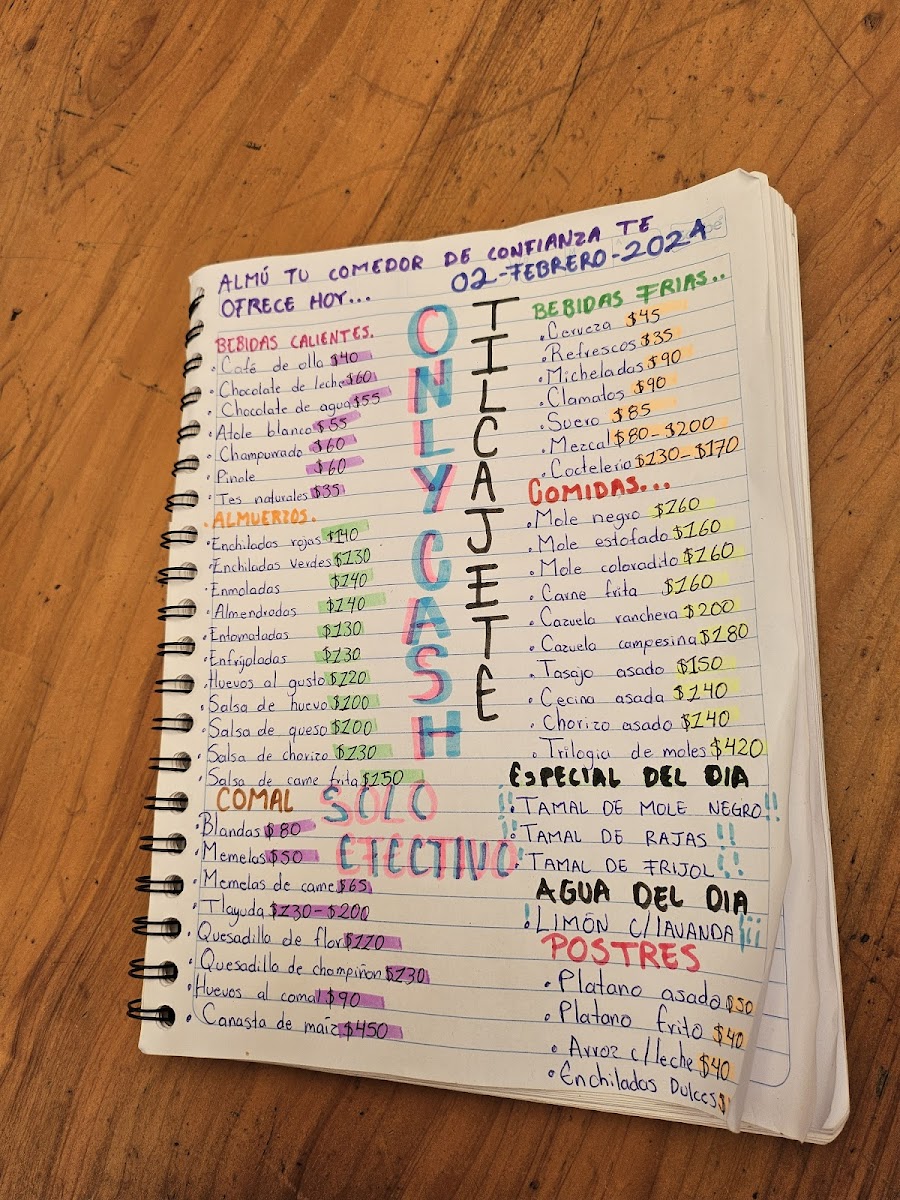 ALMÚ TU COMEDOR DE CONFIANZA TE
OFRECE HOY... 02-FEBRERO-2024
BEBIDAS CALIENTES.
• Café de olla $40
• Chocolate de leche $60
• Chocolate de agua $55
• Atole blanco $55
• Champurrado $60
• Pinole $60
• Tes naturales $35
• ALMUERZOS.
• Enchiladas rojas $140
• Enchiladas Verdes $130
• Enmoladas $140
• Almendradas $140
• Entomatadas $130
• Enfrijoladas $130
• Huevos al gusto $120
• Salsa de huevo $100
• Salsa de queso $100
• Salsa de chorizo $130
• Salsa de carne frita $150
COMAL
• Blandas $80
• Memelas $50
• Memelas de carne $65
• Tlayuda $130-$200
• Quesadilla de flor $120
• Quesadilla de champiñon $130
• Huevos al comal $90
• Canasta de maíz $450
ONLY CASH
SOLO
EFECTIVO
TILCAJETE
BEBIDAS FRIAS..
• Cerveza $45
• Refrescos $35
• Micheladas $90
• Clamatos $90
• Suero $85
• Mezcal $80-$200
• Cocteleria $130-$170
COMIDAS...
• Mole negro $160
• Mole estofado $160
• Mole coloradito $160
• Carne frita $160
• Cazuela ranchera $200
• Cazuela campesina $180
• Tasajo asado $150
• Cecina asada $140
• Chorizo asado $140
• Trilogia de moles $420
ESPECIAL DEL DIA
¡¡• TAMAL DE MOLE NEGRO!!
¡¡• TAMAL DE RAJAS !!
• TAMAL DE FRIJOL !!
AGUA DEL DIA
¡• LIMÓN C/LAVANDA ¡¡¡
POSTRES
• Platano asado $50
• Platano frito $40
• Arroz c/leche $40
• Enchiladas Dulces $